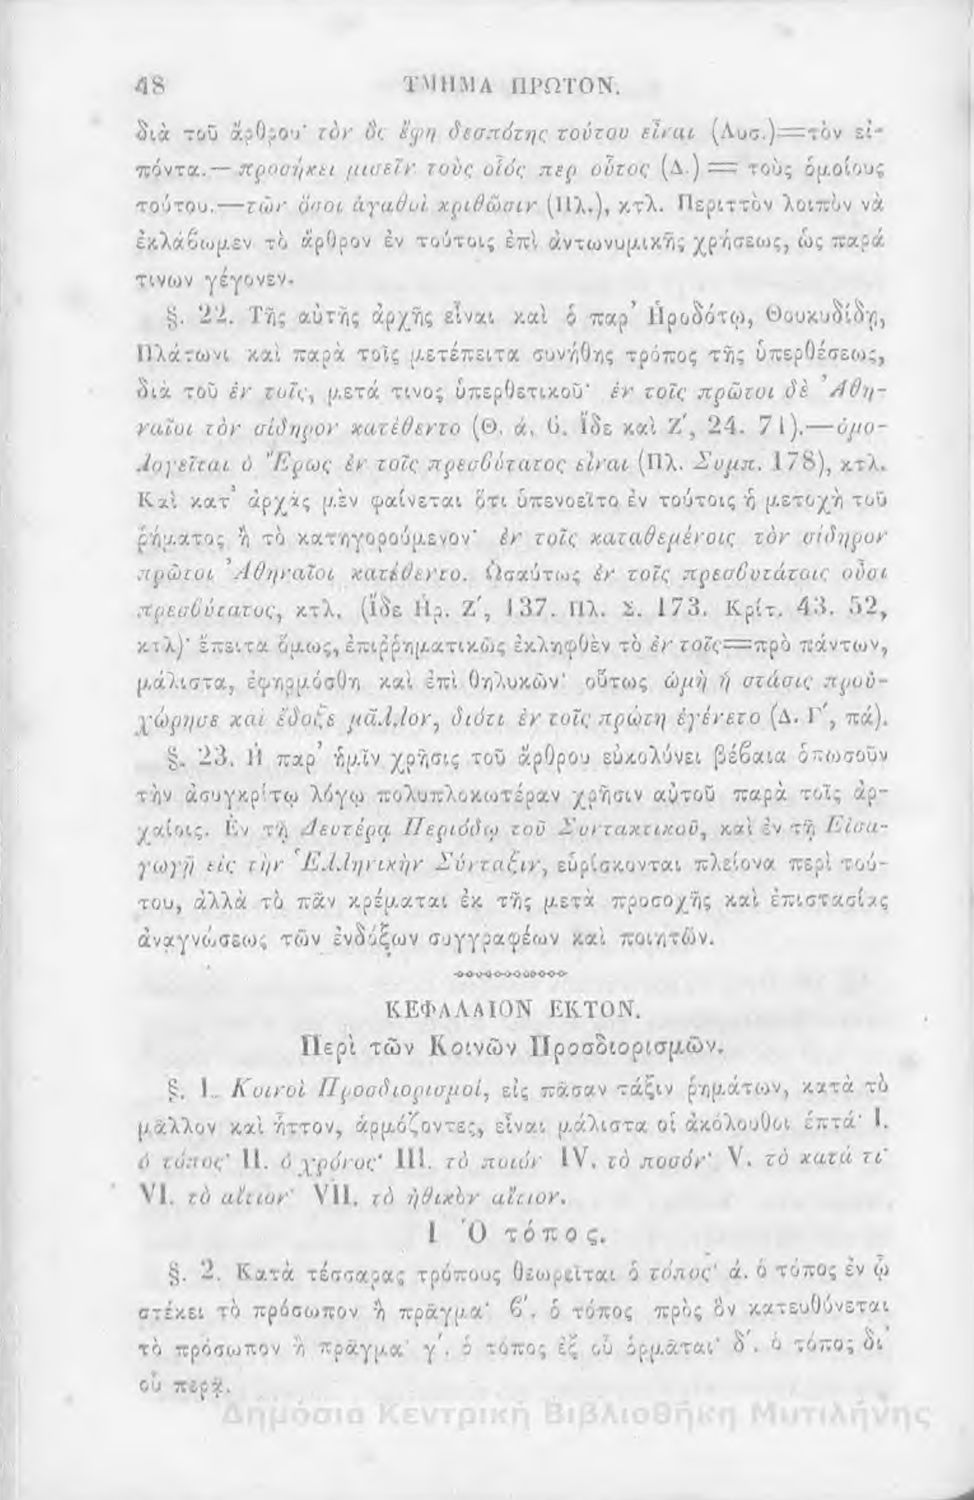 48 ΤΜΗΜΑ ΠΡΩΤΟΝ.
διὰ τοῦ ἄρθρου· τὸν ὃς ἔφη δεσπότης τούτου εἶναι (Λυσ.)=τὸν εἰ-
πόντα.— προσήκει μισεῖν τοὺς οἷός περ οὗτος (Δ.) = τοὺς ὁμοίους
τούτου.—τῶν ὅσοι ἀγαθοὶ κριθῶσιν (Πλ.), κτλ. Περιττὸν λοιπὸν νὰ
ἐκλάβωμεν τὸ ἄρθρον ἐν τούτοις ἐπὶ ἀντωνυμικῆς χρήσεως, ὡς παρά
τινων γέγονεν.
§. 22. Τῆς αὐτῆς ἀρχῆς εἶναι καὶ ὁ παρ’ Ἡροδότῳ, Θουκυδίδῃ,
Πλάτωνι καὶ παρὰ τοῖς μετέπειτα συνήθης τρόπος τῆς ὑπερθέσεως,
διὰ τοῦ ἐν τοῖς, μετά τινος ὑπερθετικοῦ· ἐν τοῖς πρῶτοι δὲ Ἀθη-
ναῖοι τὸν σίδηρον κατέθεντο (Θ. ά. 6. ἴδε καὶ Ζ΄, 24. 71).—ὁμο-
λογεῖται ὁ Ἔρως ἐν τοῖς πρεσβύτατος εἶναι (Πλ. Συμπ. 178), κτλ.
Καὶ κατ’ ἀρχὰς μὲν φαίνεται ὅτι ὑπενοεῖτο ἐν τούτοις ἡ μετοχὴ τοῦ
ῥήματος ἢ τὸ κατηγορούμενον· ἐν τοῖς καταθεμένοις τὸν σίδηρον
πρῶτοι Ἀθηναῖοι κατέθεντο. Ὡσαύτως ἐν τοῖς πρεσβυτάτοις οὖσι
πρεσβύτατος, κτλ. (ἴδε Ἡρ. Ζ΄, 137. Πλ. Σ. 173. Κρίτ. 43. 52,
κτλ)· ἔπειτα ὅμως, ἐπιῤῥηματικῶς ἐκληφθὲν τὸ ἐν τοῖς=πρὸ πάντων,
μάλιστα, ἐφηρμόσθη καὶ ἐπὶ θηλυκῶν· οὕτως ὠμὴ ἡ στάσις προὐ-
χώρησε καὶ ἔδοξε μᾶλλον, διότι ἐν τοῖς πρώτη ἐγένετο (Δ. Γ΄, πά).
§. 23. Ἡ παρ’ ἡμῖν χρῆσις τοῦ ἄρθρου εὐκολύνει βέβαια ὁπωσοῦν
τὴν ἀσυγκρίτῳ λόγῳ πολυπλοκωτέραν χρῆσιν αὐτοῦ παρὰ τοῖς ἀρ-
χαίοις. Ἐν τῇ Δευτέρᾳ Περιόδῳ τοῦ Συντακτικοῦ, καὶ ἐν τῇ Εἰσα-
γωγῇ εἰς τὴν Ἑλληνικὴν Σύνταξιν, εὑρίσκονται πλείονα περὶ τού-
του, ἀλλὰ τὸ πᾶν κρέμαται ἐκ τῆς μετὰ προσοχῆς καὶ ἐπιστασίας
ἀναγνώσεως τῶν ἐνδόξων συγγραφέων καὶ ποιητῶν.
ΚΕΦΑΛΑΙΟΝ ΕΚΤΟΝ.
Περὶ τῶν Κοινῶν Προσδιορισμῶν.
§. 1. Κοινοὶ Προσδιορισμοί, εἰς πᾶσαν τάξιν ῥημάτων, κατὰ τὸ
μᾶλλον καὶ ἧττον, ἁρμόζοντες, εἶναι μάλιστα οἱ ἀκόλουθοι ἑπτά· I.
ὁ τόπος· II. ὁ χρόνος· III. τὸ ποιόν· IV. τὸ ποσόν· V. τὸ κατά τι·
VI. τὸ αἴτιον· VII. τὸ ἠθικὸν αἴτιον.
I Ὁ τόπος.
§. 2. Κατὰ τέσσαρας τρόπους θεωρεῖται ὁ τόπος· ά. ὁ τόπος ἐν ᾧ
στέκει τὸ πρόσωπον ἢ πρᾶγμα· β΄. ὁ τόπος πρὸς ὃν κατευθύνεται
τὸ πρόσωπον ἢ πρᾶγμα· γ΄. ὁ τόπος ἐξ οὗ ὁρμᾶται· δ΄. ὁ τόπος δι’
οὗ περᾷ.
Δημόσια Κεντρική Βιβλιοθήκη Μυτιλήνης